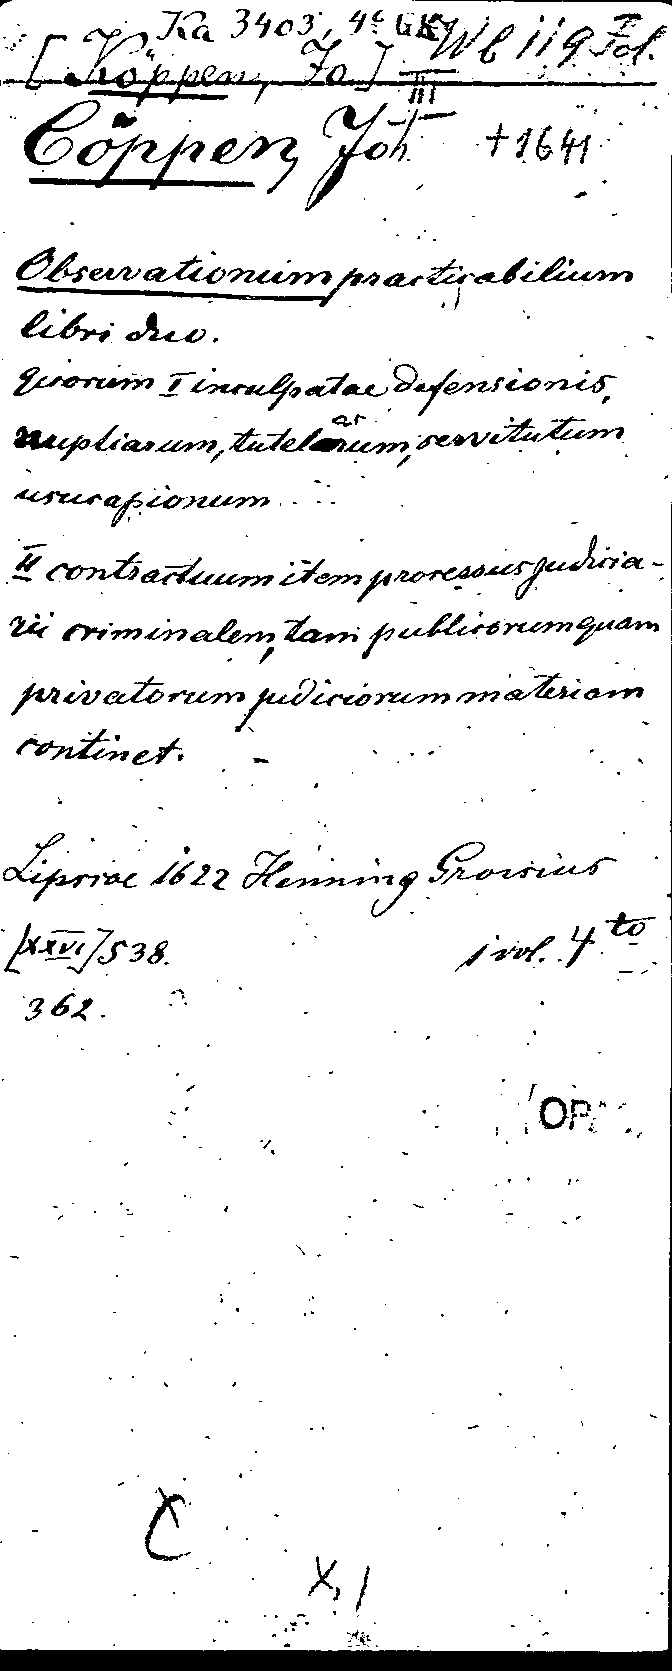 Ka 3403, 4° GK
Wb 119 Fol.
[Köppen, Jo]
III
Cöppen, Joh. +1641
Observationum practicabilium
libri duo.
quorum I inculpatae defensionis,
nuptiarum, tutelarum, servitutum
usucapionum
II contractuum item processus judicia-
rii criminalem, tam publicorum quam
privatorum judiciorum materiam
continet.
Lipsiae 1622 Henning Grosius
[XXVI] 538. 1 vol. 4to
362.
C
X, 1